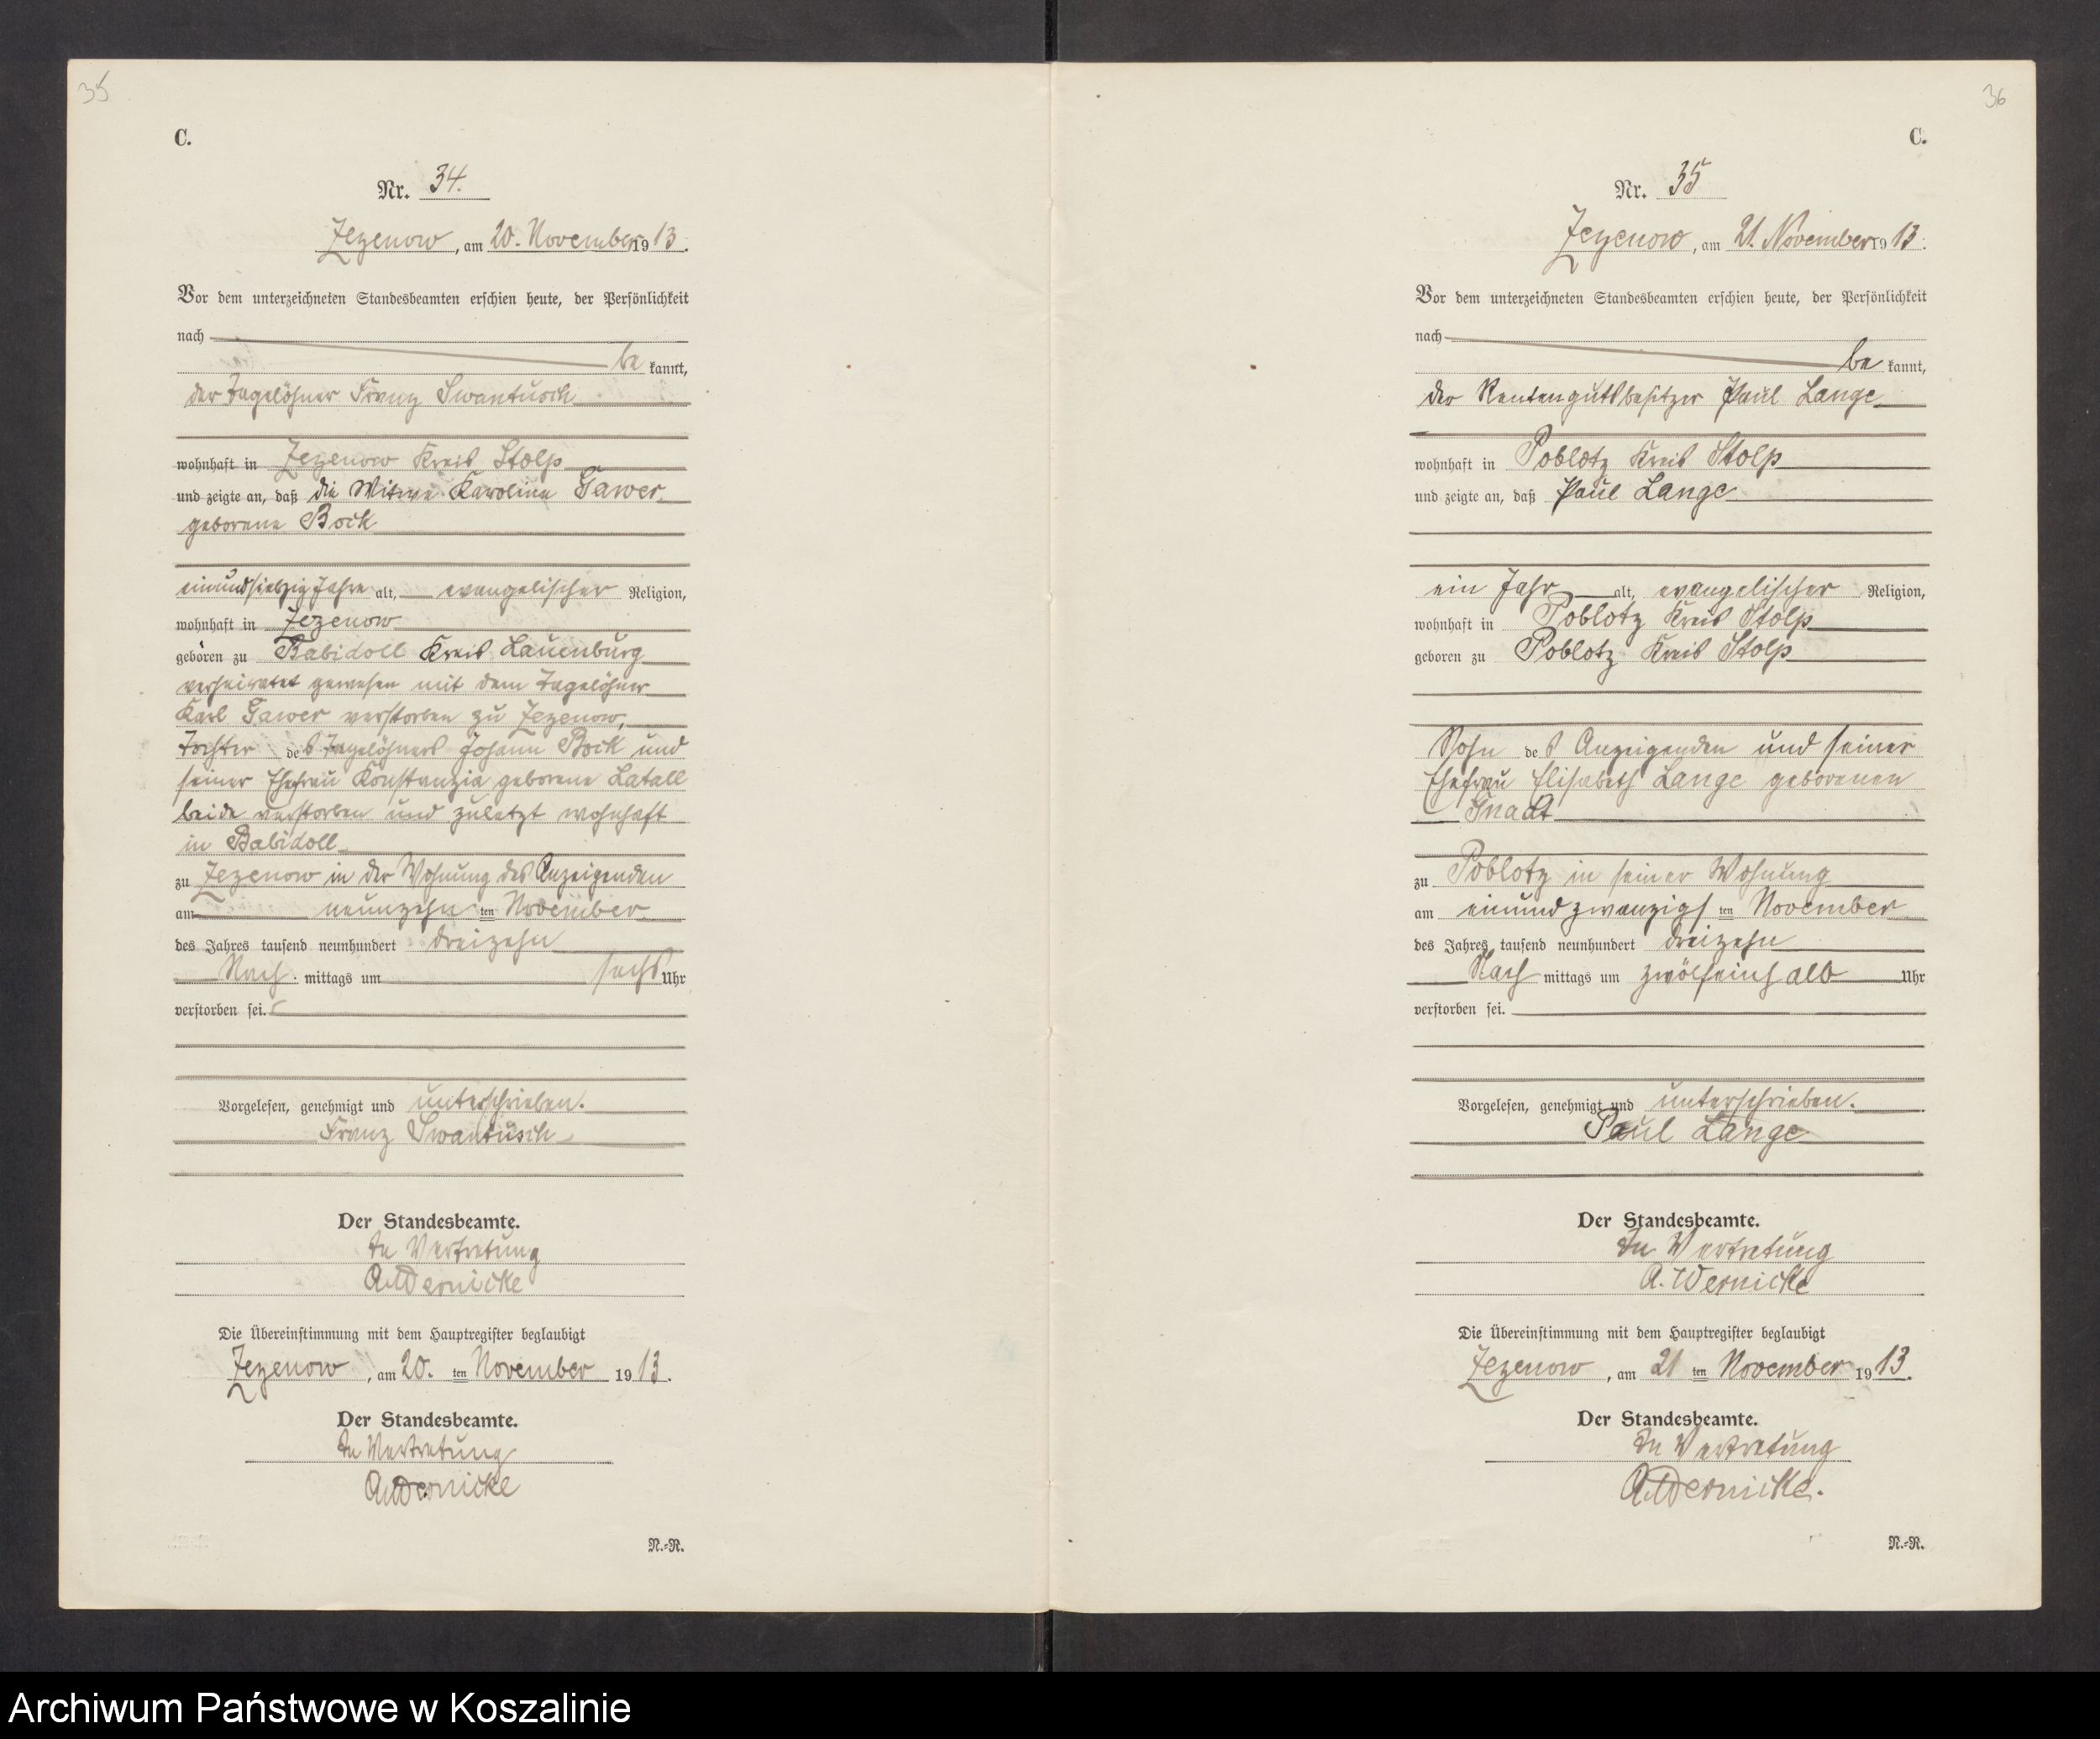 35
C.
Nr. 34.
Zezenow, am 20. November 1913.
Vor dem unterzeichneten Standesbeamten erschien heute, der Persönlichkeit
nach
be kannt,
der Tagelöhner Franz Swantusch
wohnhaft in Zezenow Kreis Stolp
und zeigte an, daß die Witwe Karoline Gawer
geborene Bock
einundsiebzig Jahre alt, evangelischer Religion,
wohnhaft in Zezenow
geboren zu Babidoll Kreis Lauenburg
verheiratet gewesen mit dem Tagelöhner
Karl Gawer verstorben zu Zezenow,
Tochter des Tagelöhners Johann Bock und
seiner Ehefrau Konstanzia geborene Latall
beide verstorben und zuletzt wohnhaft
in Babidoll
zu Zezenow in der Wohnung des Anzeigenden
am neunzehn ten November
des Jahres tausend neunhundert dreizehn
Nach mittags um sechs Uhr
verstorben sei.
Vorgelesen, genehmigt und unterschrieben.
Franz Swantusch
Der Standesbeamte.
In Vertretung
A. Wernicke
Die Übereinstimmung mit dem Hauptregister beglaubigt
Zezenow, am 20. ten November 1913.
Der Standesbeamte.
In Vertretung
A. Wernicke
N.=R.
36
C.
Nr. 35
Zezenow, am 21. November 1913.
Vor dem unterzeichneten Standesbeamten erschien heute, der Persönlichkeit
nach
be kannt,
der Rentengutsbesitzer Paul Lange
wohnhaft in Poblotz Kreis Stolp
und zeigte an, daß Paul Lange
ein Jahr alt, evangelischer Religion,
wohnhaft in Poblotz Kreis Stolp
geboren zu Poblotz Kreis Stolp
Sohn des Anzeigenden und seiner
Ehefrau Elisabeth Lange geborenen
Gnadt
zu Poblotz in seiner Wohnung
am einundzwanzigs ten November
des Jahres tausend neunhundert dreizehn
Nach mittags um zwölfeinhalb Uhr
verstorben sei.
Vorgelesen, genehmigt und unterschrieben.
Paul Lange
Der Standesbeamte.
In Vertretung
A. Wernicke
Die Übereinstimmung mit dem Hauptregister beglaubigt
Zezenow, am 21 ten November 1913.
Der Standesbeamte.
In Vertretung
A. Wernicke.
N.=R.
Archiwum Państwowe w Koszalinie